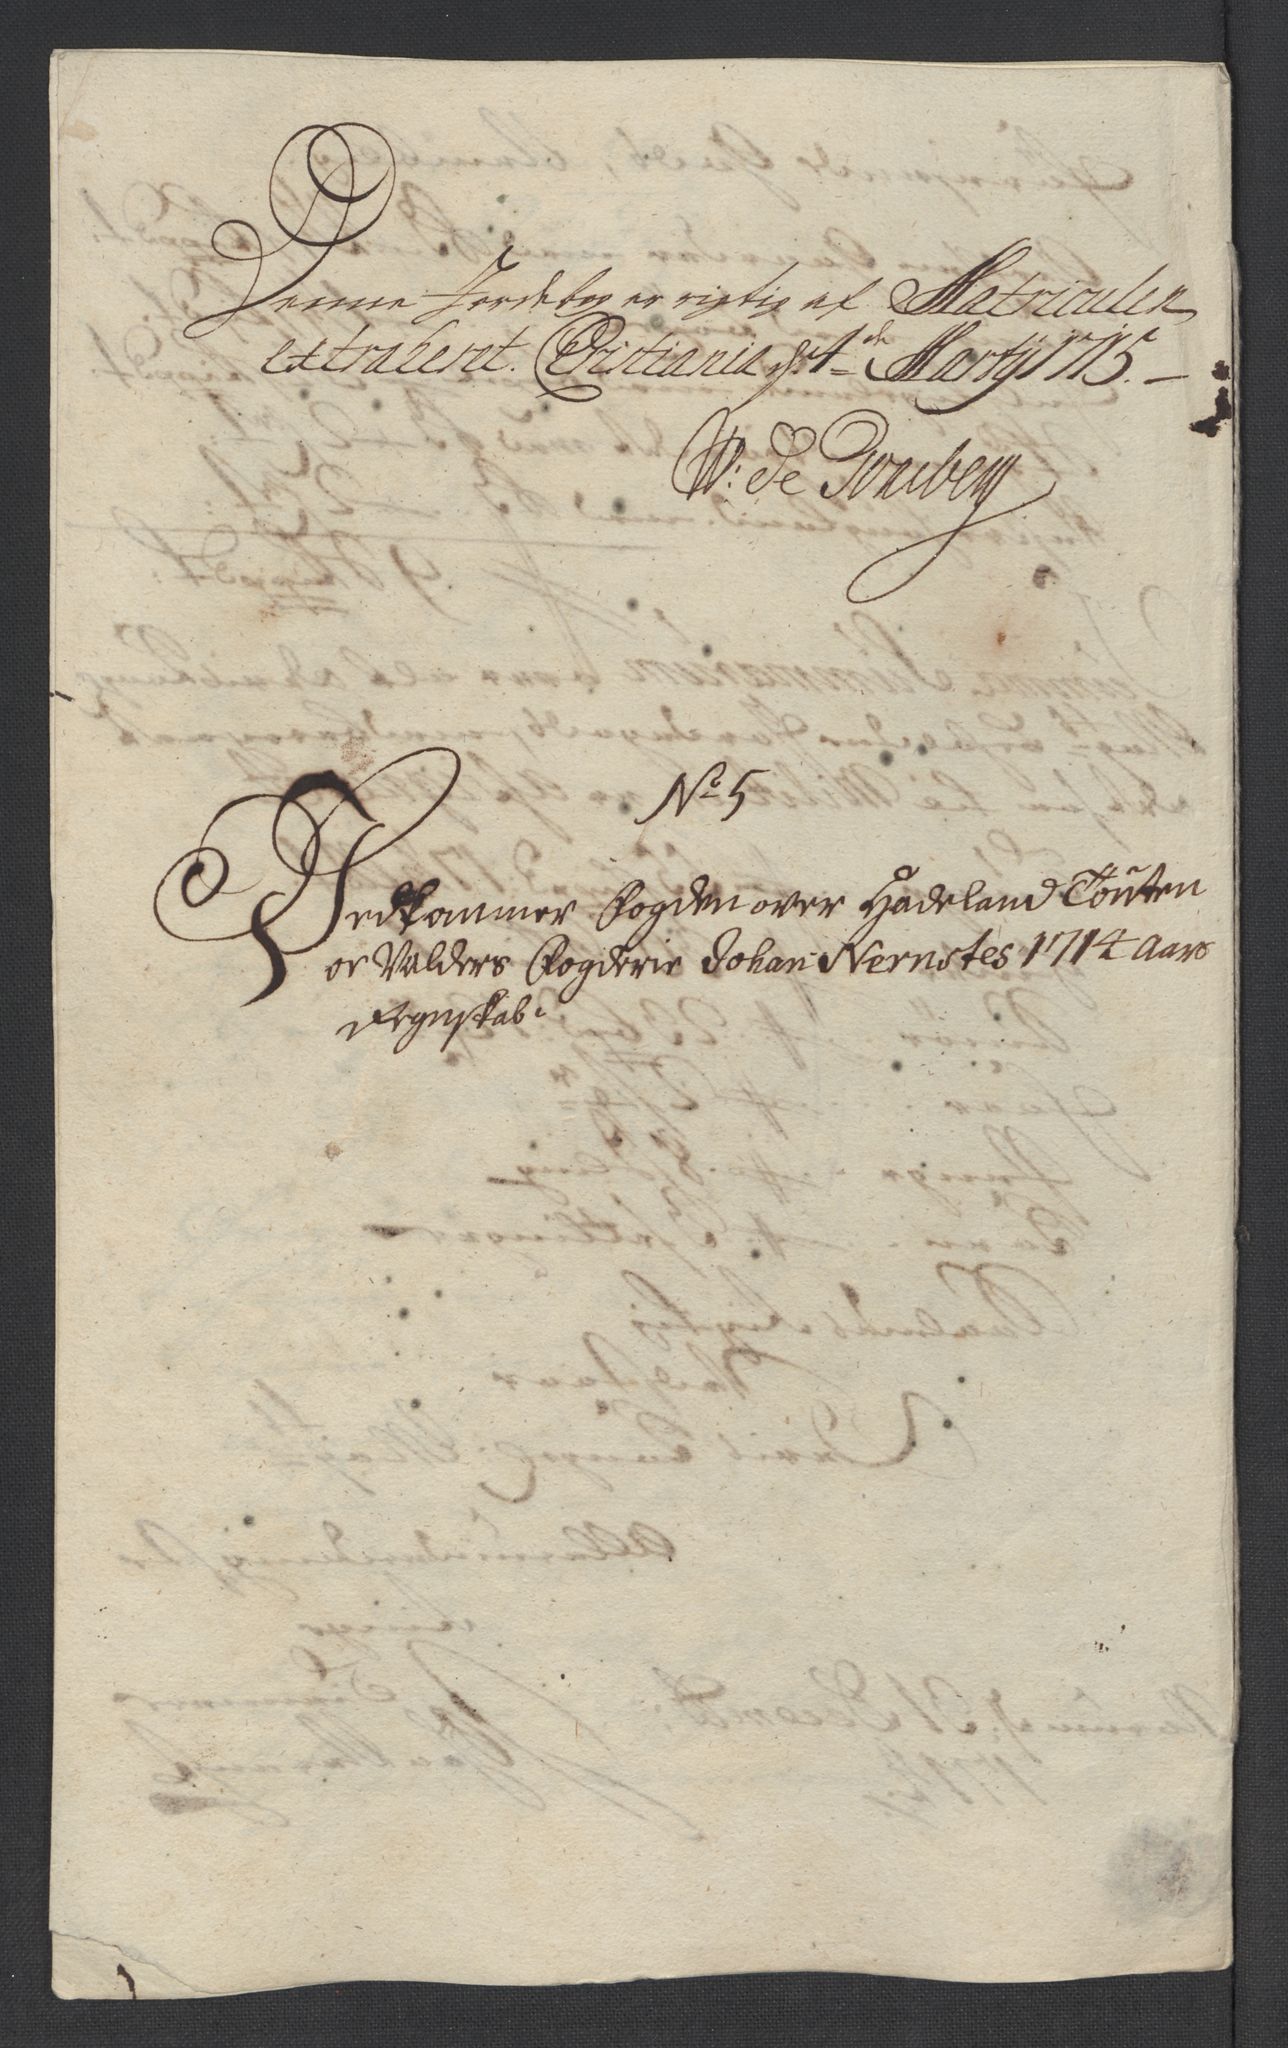 Denne Jordebog er rigtig af Matriculen
extraheret. Christiania d: 4de Martij 1715.
W: de Tonsberg
No 5
Vedkommer Fogden over Hadeland Toten
oc Valders Fogderie Johan Nernstes 1714 Aars
Regnskab.